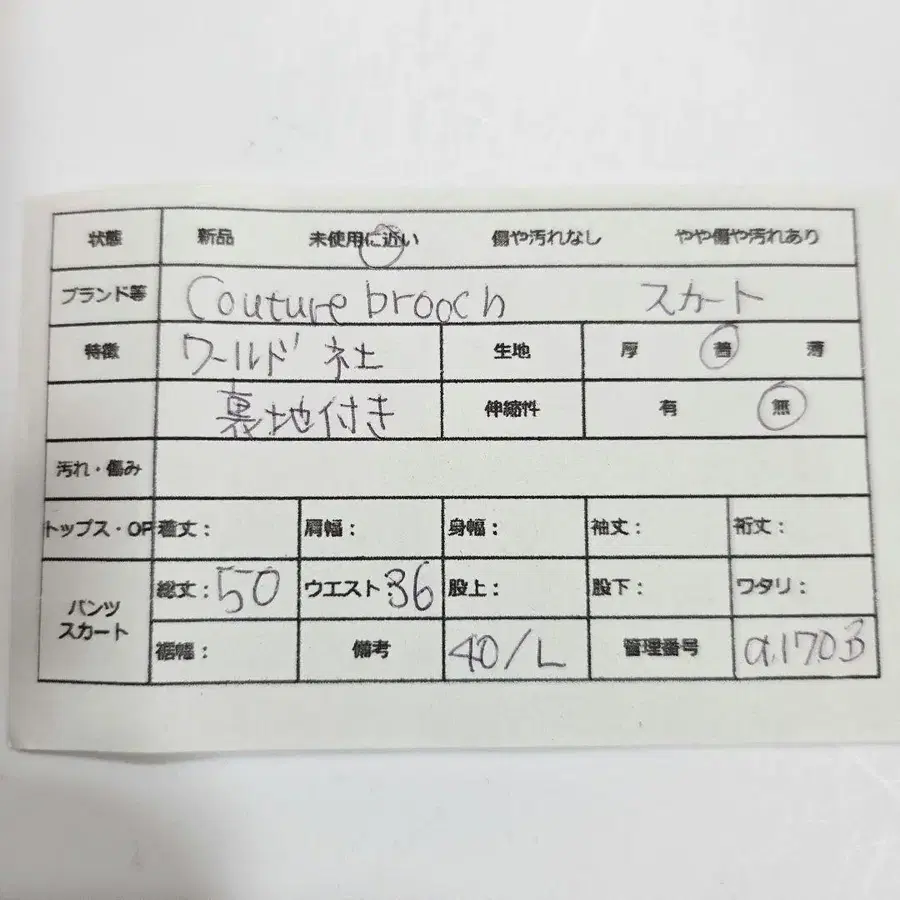 状態 新品 未使用に近い 傷や汚れなし やや傷や汚れあり
ブランド等 Couture brooch スカート
特徴 ワールド社 生地 厚 普 薄
裏地付き 伸縮性 有 無
汚れ・傷み
トップス・OP 着丈： 肩幅： 身幅： 袖丈： 裄丈：
パンツ スカート 総丈：50 ウエスト：36 股上： 股下： ワタリ：
裾幅： 備考 40/L 管理番号 a.1703